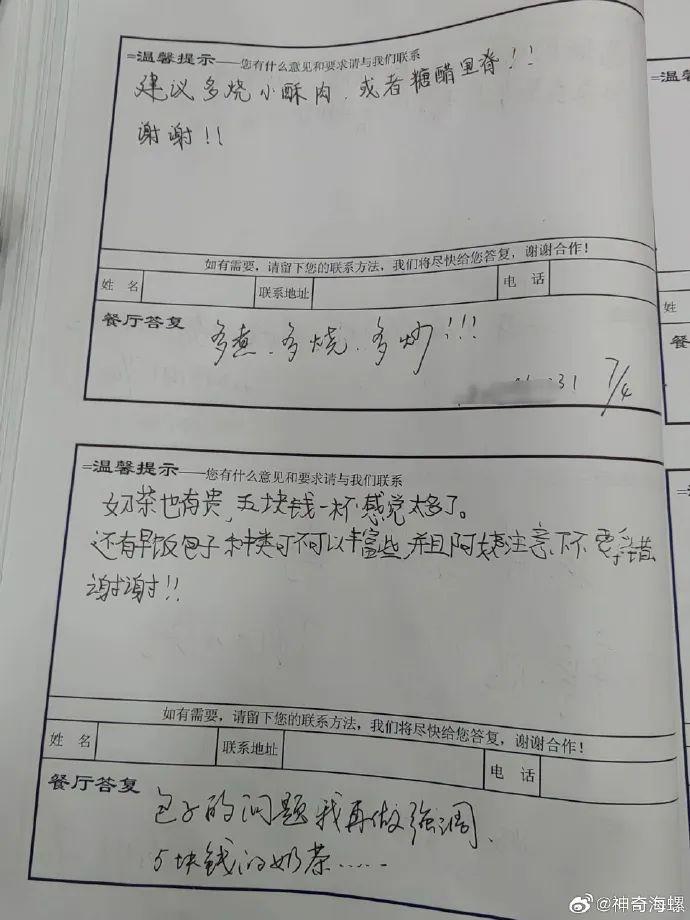 =温馨提示——您有什么意见和要求请与我们联系
建议多烧小酥肉、或者糖醋里脊!!
谢谢!!
如有需要，请留下您的联系方法，我们将尽快给您答复，谢谢合作！
姓 名 联系地址 电 话
餐厅答复
多煮、多烧、多炒!!!
31 7/4
=温馨提示——您有什么意见和要求请与我们联系
奶茶也有贵，五块钱一杯感觉太多了。
还有早饭包子种类可不可以丰富些，并且阿姨注意下不要弄错
谢谢!!
如有需要，请留下您的联系方法，我们将尽快给您答复，谢谢合作！
姓 名 联系地址 电 话
餐厅答复
包子的问题我再做强调、
5块钱的奶茶……
=温馨
姓
餐厅
=温
姓
餐
@神奇海螺